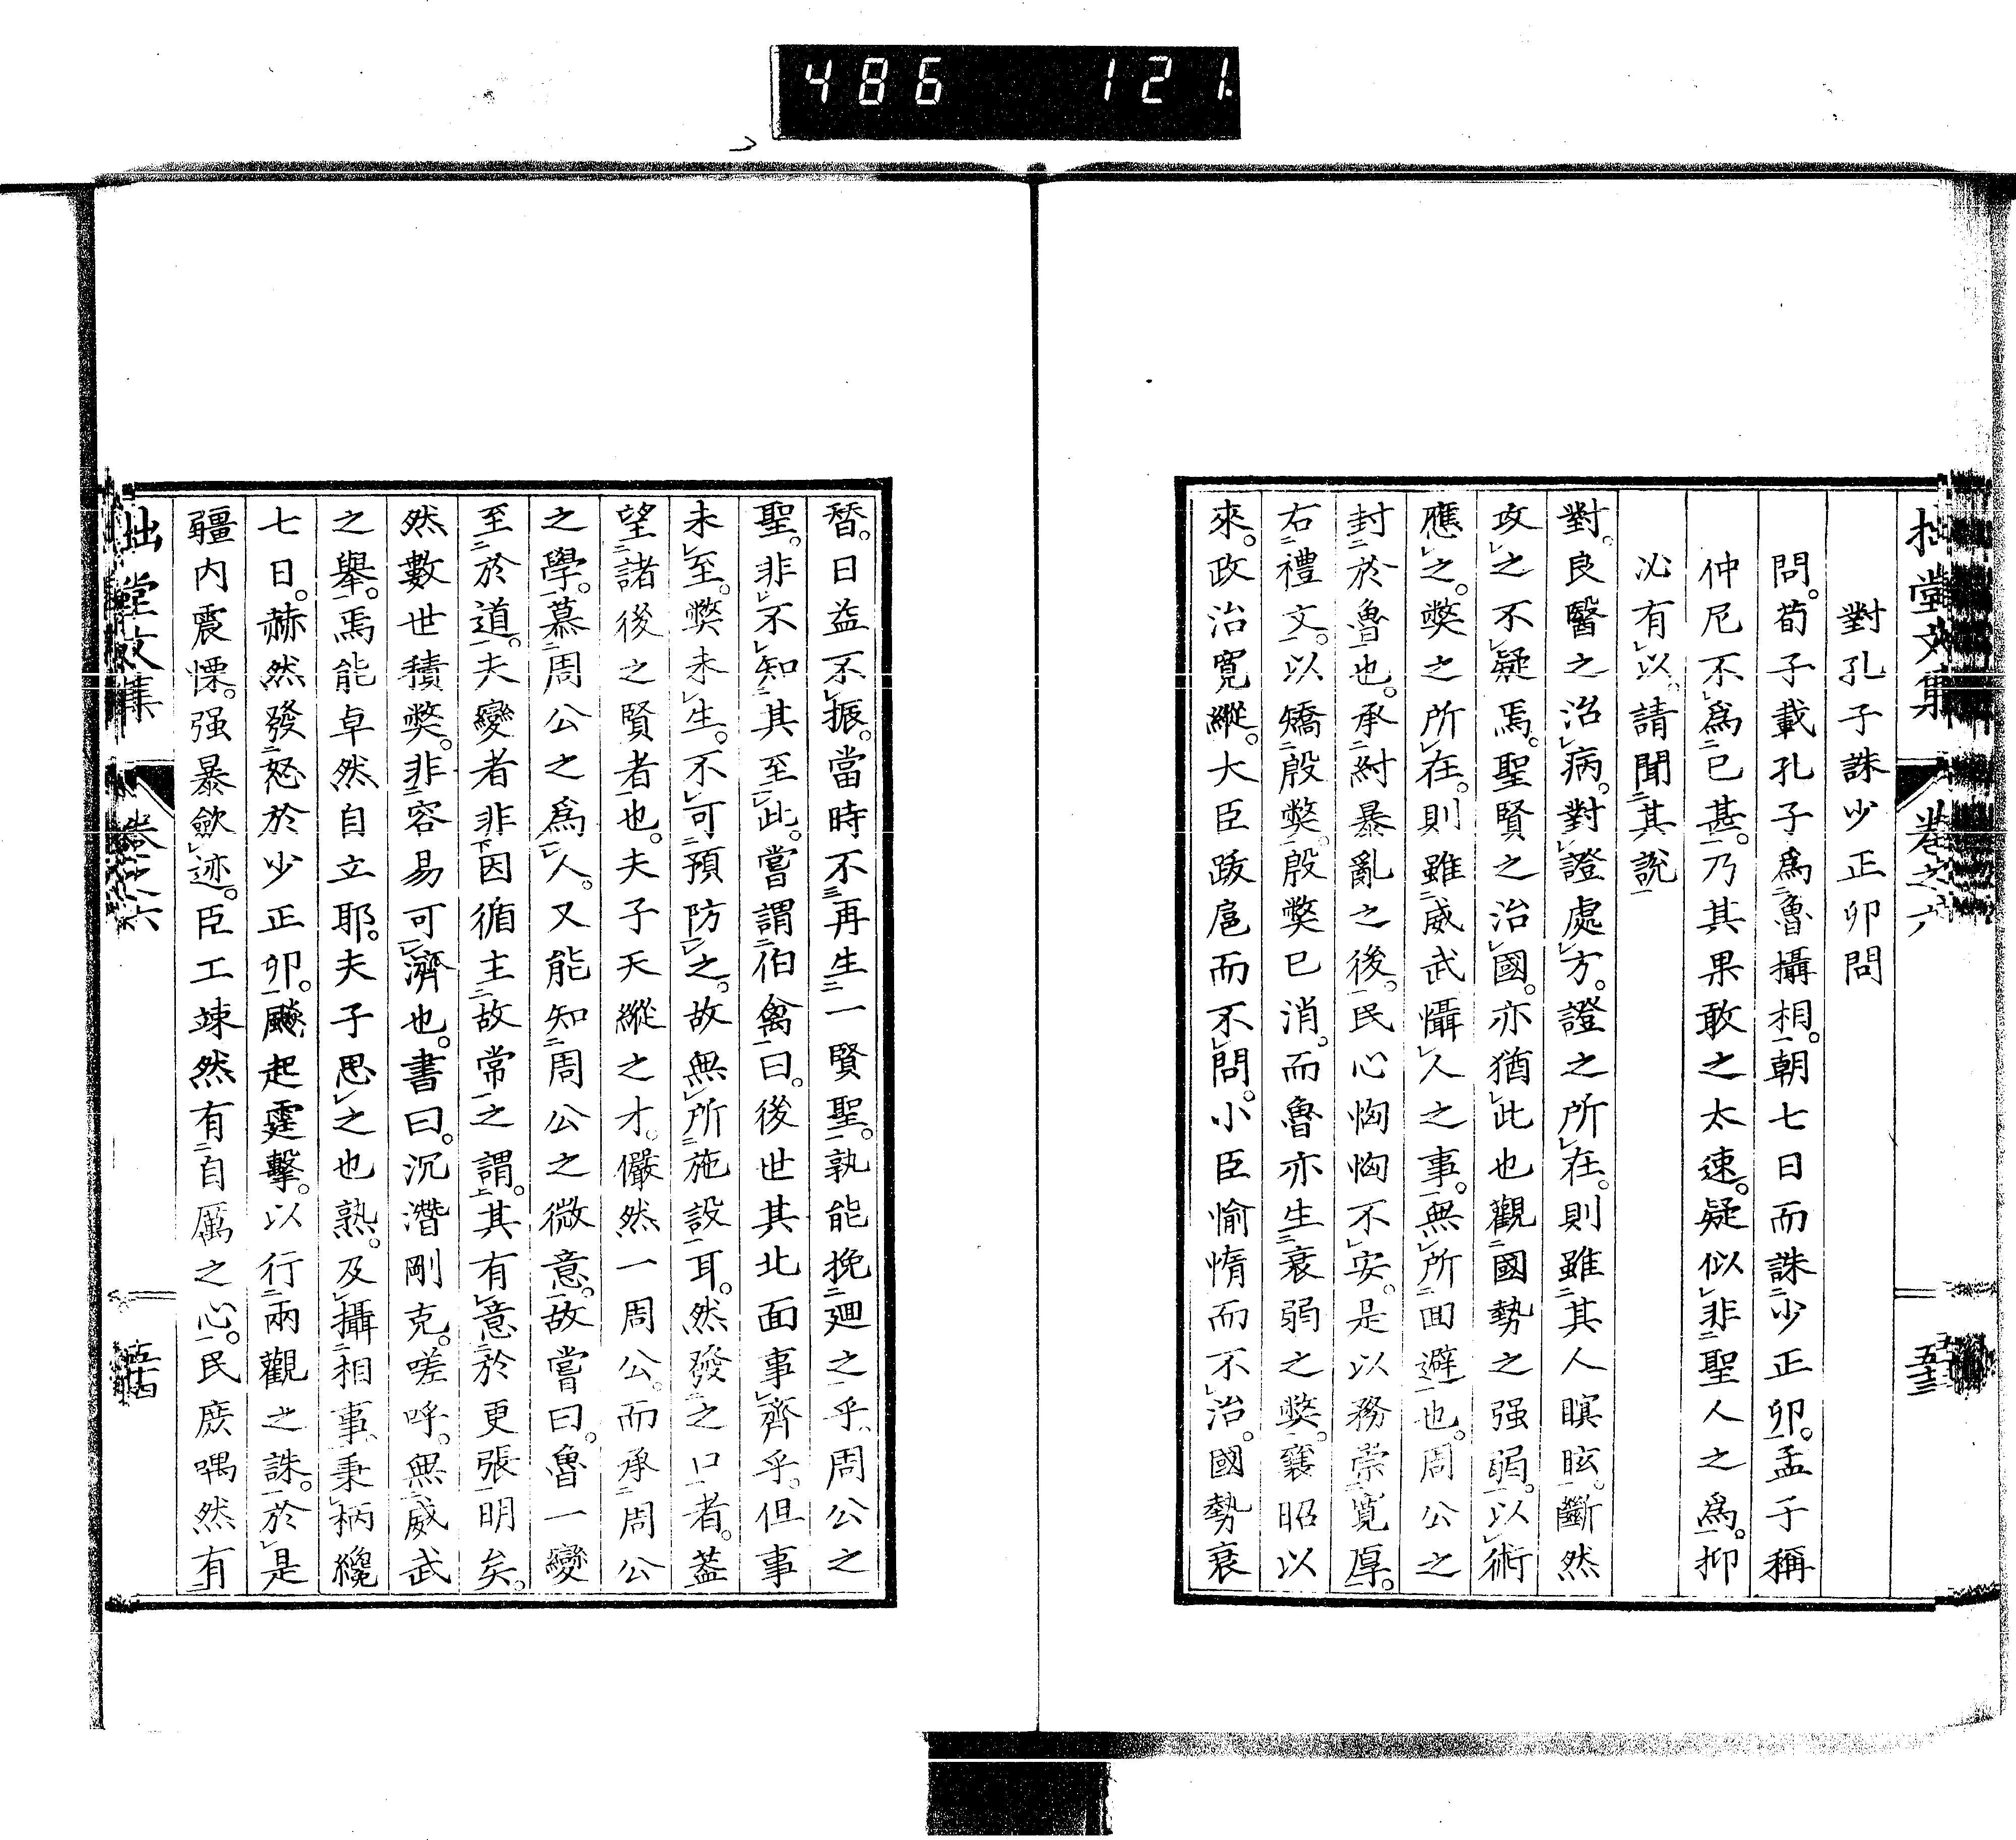 486 121
拙堂文集 卷之六 五十三
對孔子誅少正卯問
問。荀子載孔子爲魯攝相。朝七日而誅少正卯。孟子稱
仲尼不爲已甚。乃其果敢之太速。疑似非聖人之爲。抑
必有以。請聞其說
對。良醫之治病。對證處方。證之所在。則雖其人瞑眩。斷然
攻之不疑焉。聖賢之治國。亦猶此也觀國勢之强弱。以術
應之。弊之所在。則雖威武懾人之事。無所回避也。周公之
封於魯也。承紂暴亂之後。民心恟恟不安。是以務崇寬厚。
右禮文。以矯殷弊。殷弊已消。而魯亦生衰弱之弊。襄昭以
來。政治寬縱。大臣跋扈而不問。小臣愉惰而不治。國勢衰
替。日益不振。當時不再生一賢聖。孰能挽廻之乎、周公之
聖。非不知其至此。嘗謂伯禽曰。後世其北面事齊乎。但事
未至。弊未生。不可預防之。故無所施設耳。然發之口者。蓋
望諸後之賢者也。夫子天縱之才。儼然一周公。而承周公
之學。慕周公之爲人。又能知周公之微意。故嘗曰。魯一變
至於道。夫變者非因循主故常之謂。其有意於更張明矣。
然數世積弊。非容易可濟也。書曰。沉潛剛克。嗟呼。無威武
之舉。焉能卓然自立耶。夫子思之也熟。及攝相事、秉柄纔
七日。赫然發怒於少正卯。飇起霆擊。以行兩觀之誅。於是
疆内震慄。强暴歛迹。臣工竦然有自厲之心。民庶喁然有
拙堂文集 卷之六 五十四